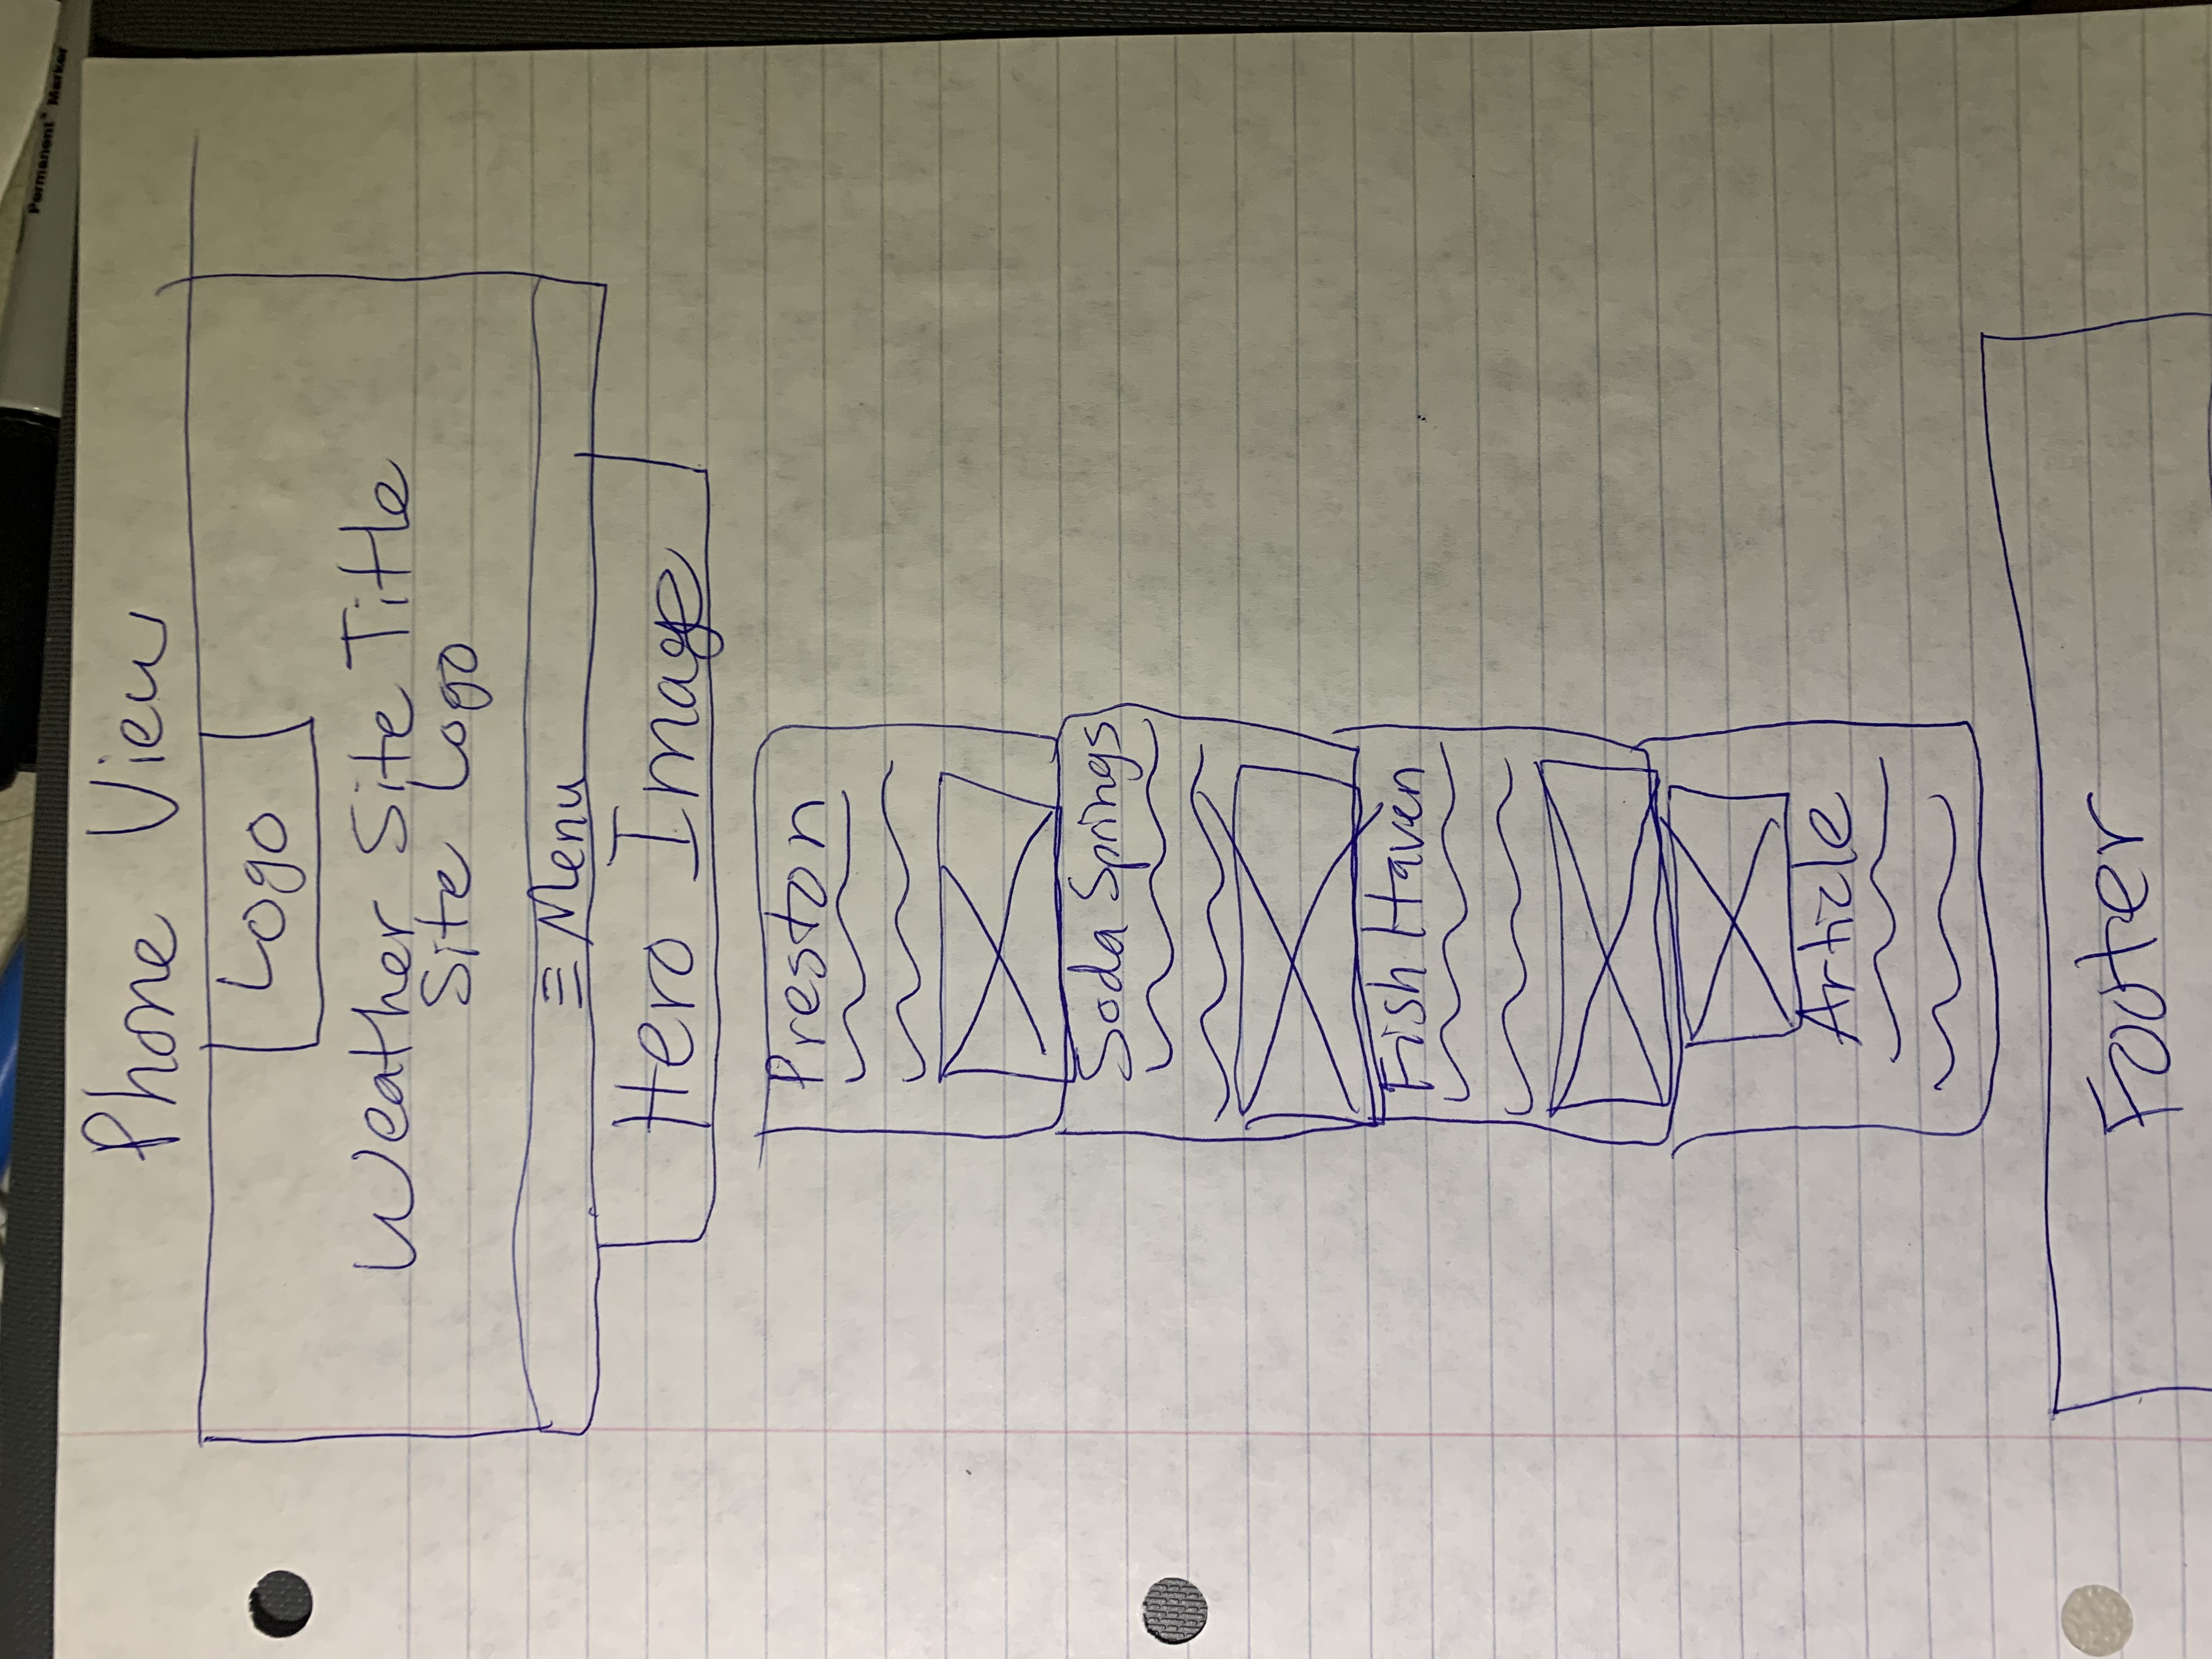 Permanent Marker
Phone View
Logo
Weather Site Title
Site Logo
≡ Menu
Hero Image
Preston
Soda Springs
Fish Haven
Article
Footer